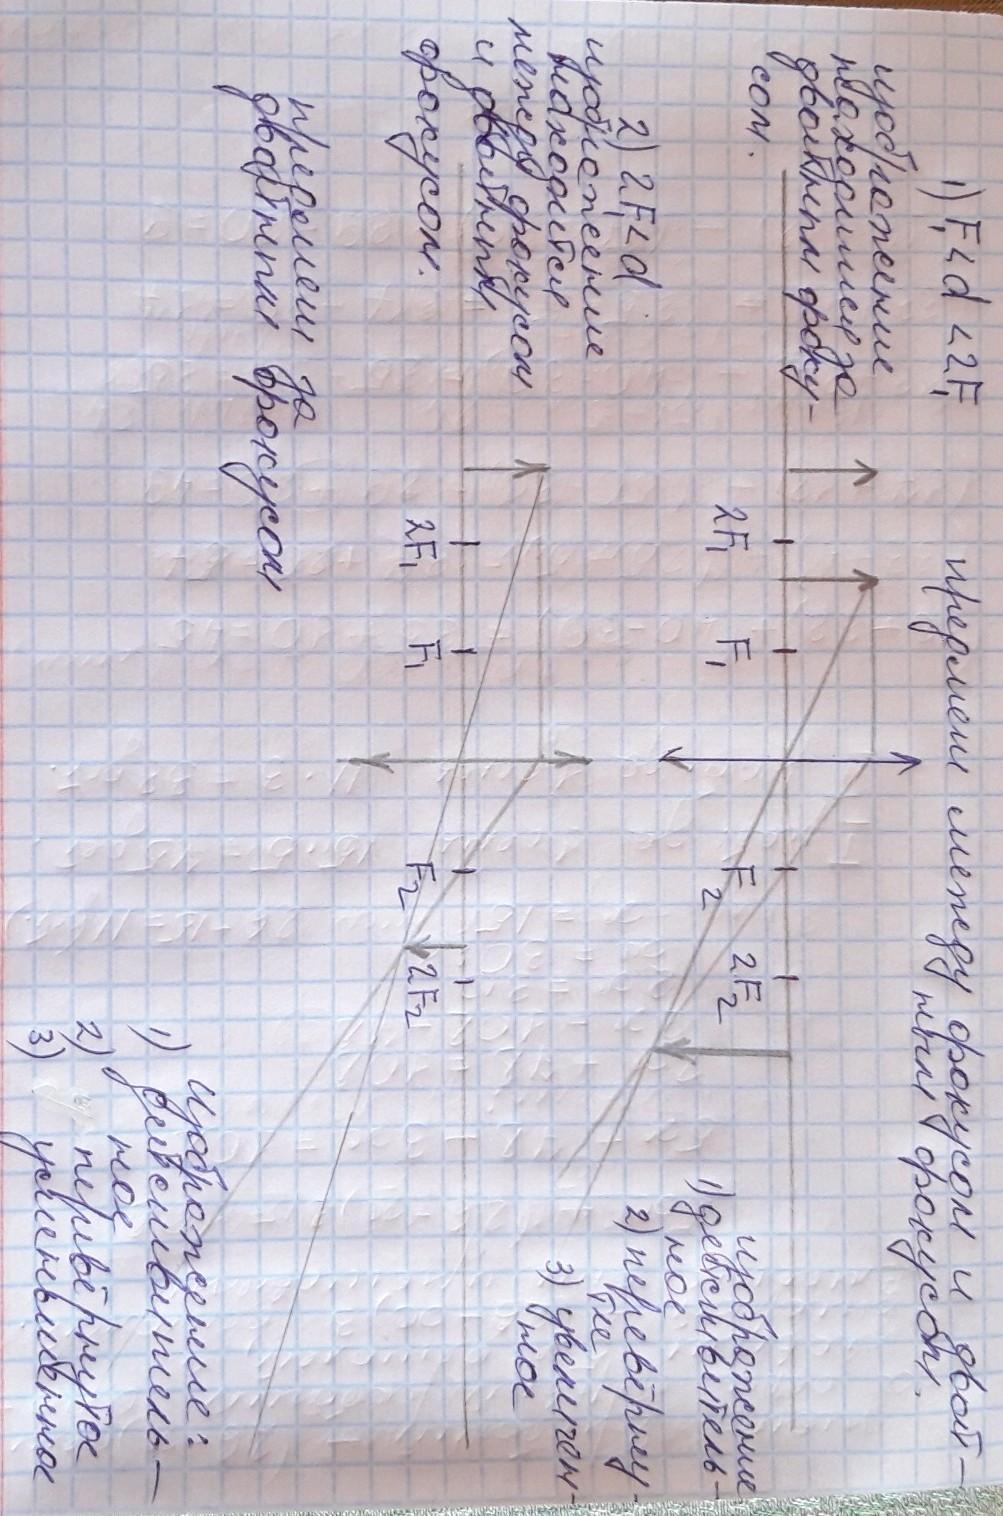 предмет между фокусом и двой-
тным фокусом.
1) F₁ < d < 2F₁
изображение
находится за
двойтным фоку-
сом.
2F₁
F₁
F₂
2F₂
изображение
1) действитель-
ное
2) перевёрну-
тое
3) увеличен-
ное
2) 2F₁ < d
изображение
находится
между фокусом
и двойтным
фокусом.
2F₁
F₁
F₂
2F₂
предмет за
двойтным фокусом
изображение:
1) действитель-
ное
2) перевёрнутое
3) уменьшенное